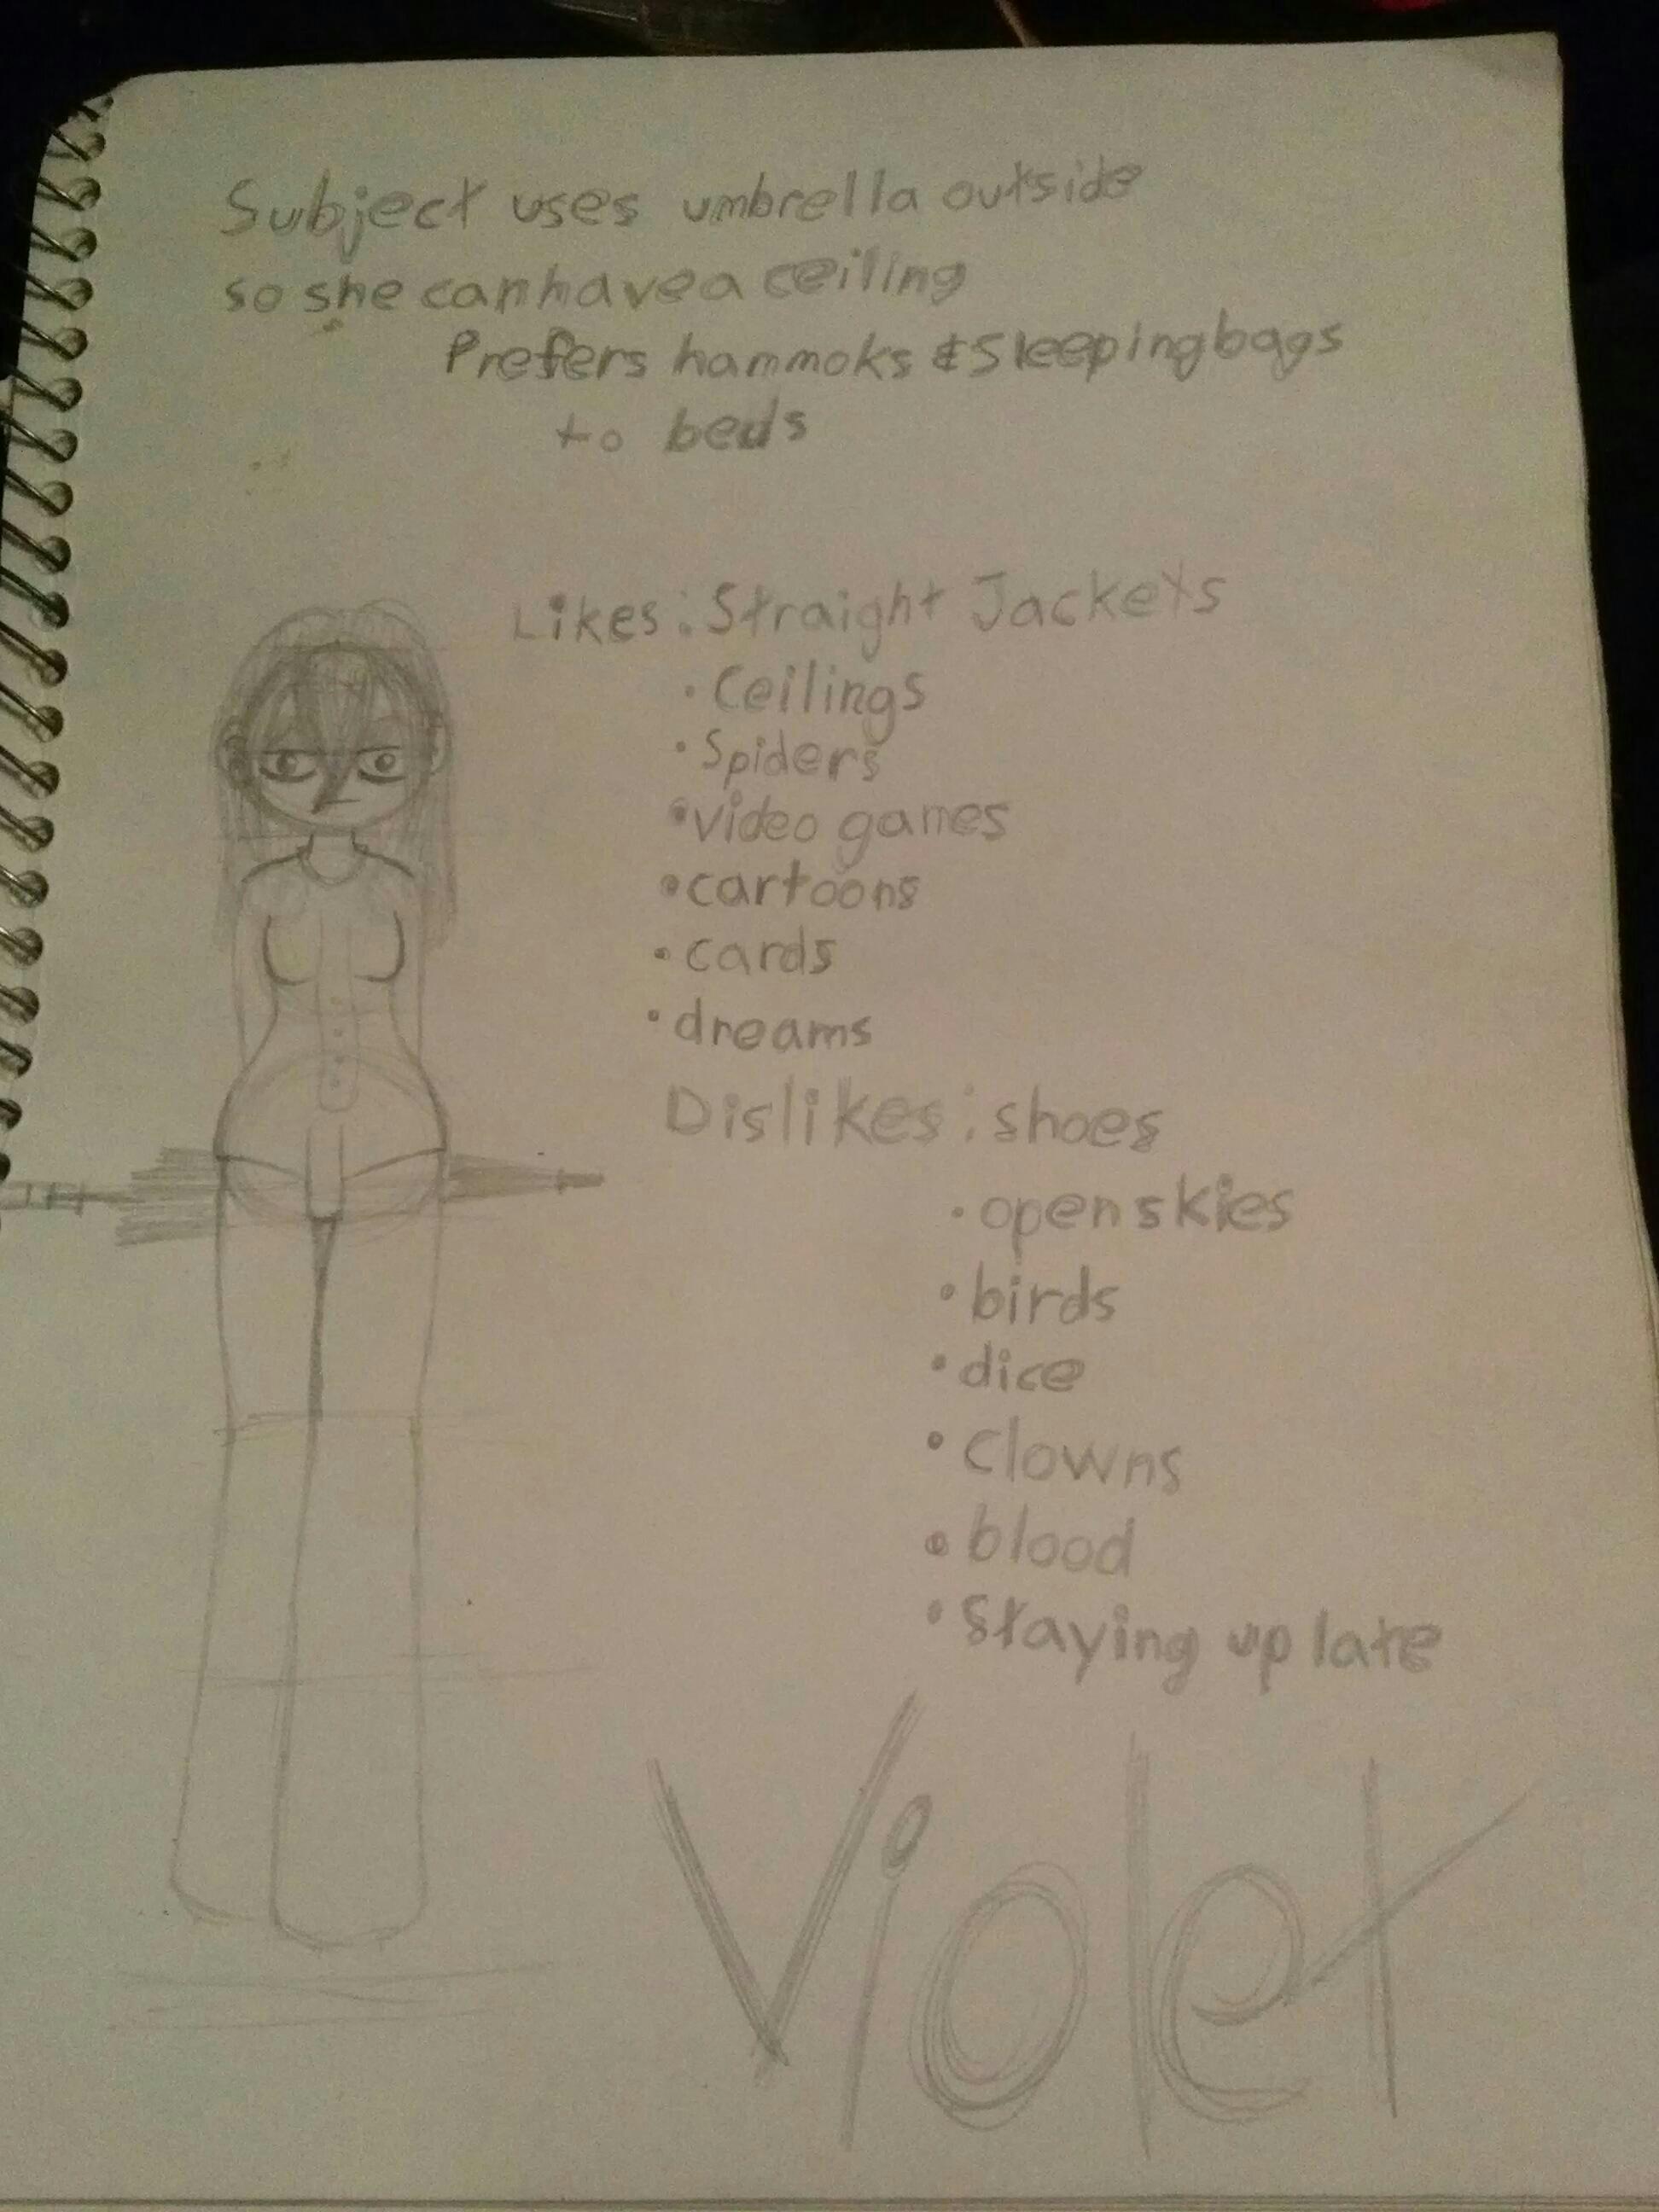 Subject uses umbrella outside
so she can have a ceiling
Prefers hammoks & Sleeping bags
to beds
Likes: Straight Jackets
· Ceilings
· Spiders
· video games
· cartoons
· cards
· dreams
Dislikes: shoes
· open skies
· birds
· dice
· Clowns
· blood
· Staying up late
Violet